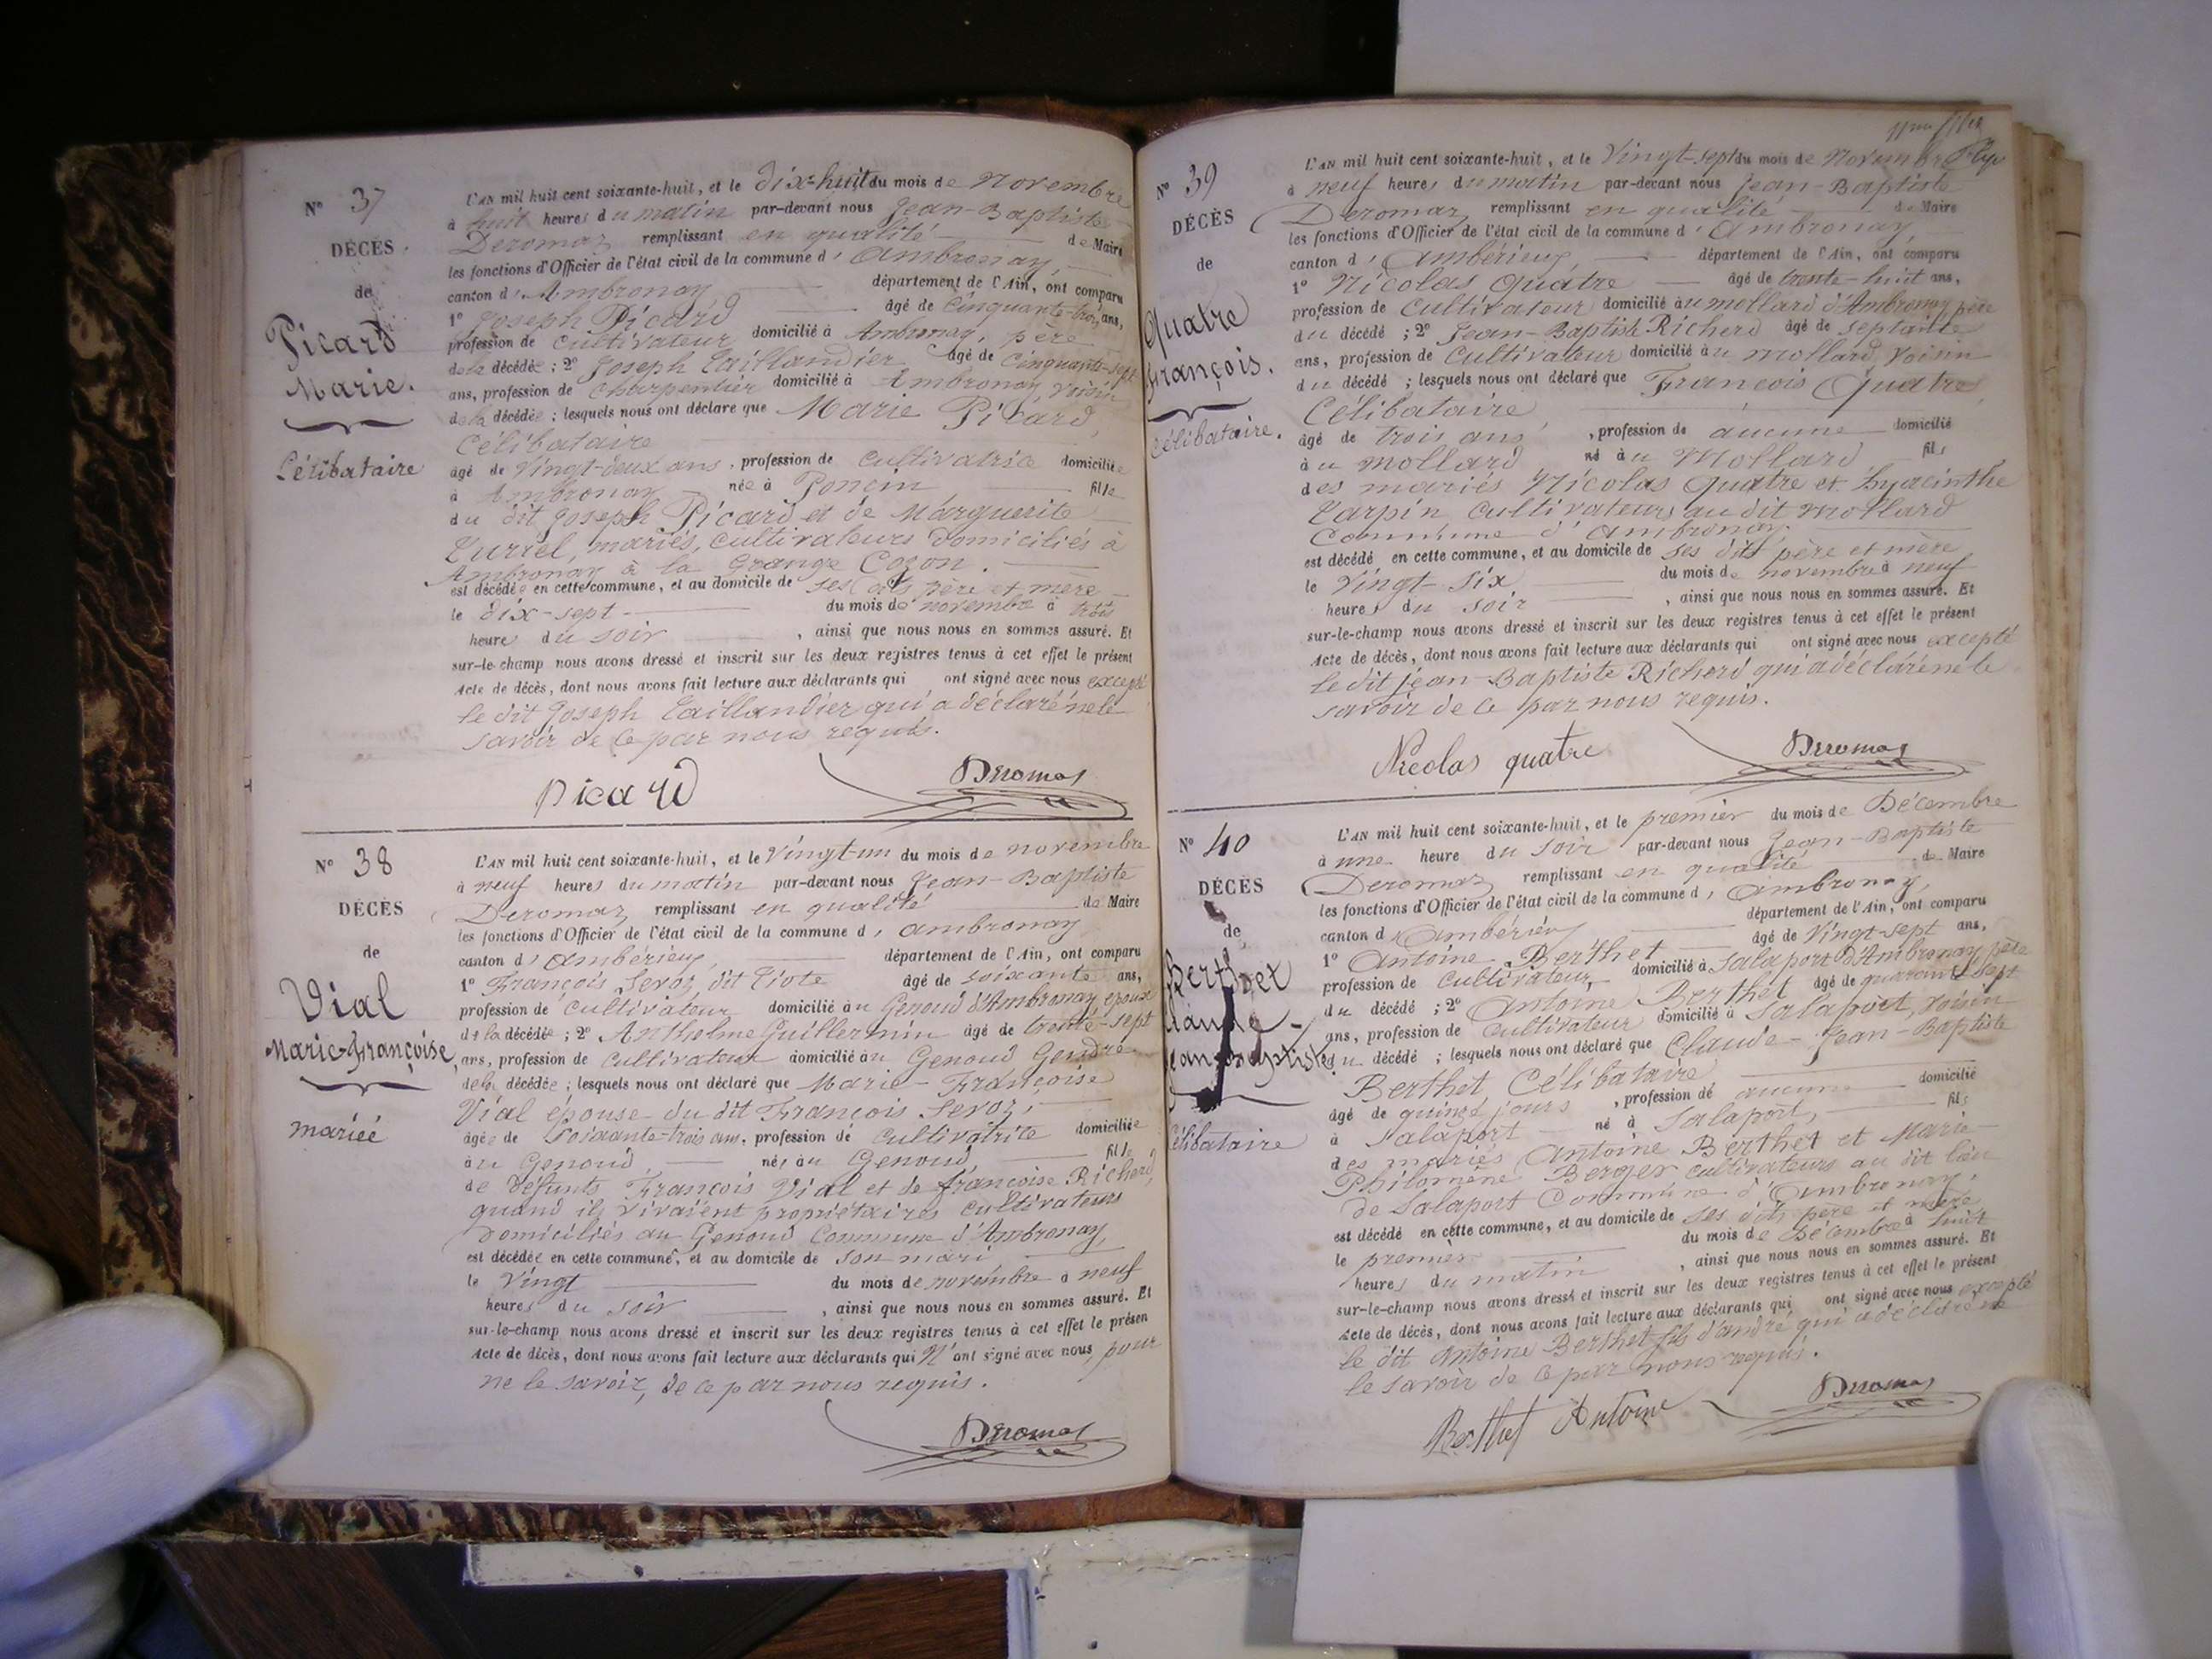 N° 37
DÉCÈS
de
Picard
Marie.
Célibataire
L'AN mil huit cent soixante-huit, et le dix-huit du mois de Novembre
à huit heures du matin par-devant nous Jean-Baptiste
Deromas remplissant en qualité de Maire
les fonctions d'Officier de l'état civil de la commune d'Ambronay,
canton d'Ambronay département de l'Ain, ont comparu
1° Joseph Picard âgé de Cinquante-trois ans,
profession de Cultivateur domicilié à Ambronay, père
de la décédée ; 2° Joseph Taillandier âgé de Cinquante-sept
ans, profession de Charpentier domicilié à Ambronay, voisin
de la décédée ; lesquels nous ont déclaré que Marie Picard,
Célibataire
âgé de Vingt-deux ans, profession de Cultivatrice domiciliée
à Ambronay née à Poncin fille
du dit Joseph Picard et de Marguerite
mariés, cultivateurs domiciliés à
Ambronay à la Grange Cozon.
est décédée en cette commune, et au domicile de ses dits père et mère
le dix-sept du mois de novembre à trois
heures du soir, ainsi que nous nous en sommes assuré. Et
sur-le-champ nous avons dressé et inscrit sur les deux registres tenus à cet effet le présent
Acte de décès, dont nous avons fait lecture aux déclarants qui ont signé avec nous excepté
le dit Joseph Taillandier qui a déclaré ne le
savoir de ce par nous requis.
Picard Deromas
N° 38
DÉCÈS
de
Vial
Marie-Françoise,
mariée
L'AN mil huit cent soixante-huit, et le Vingt-un du mois de novembre
à neuf heures du matin par-devant nous Jean-Baptiste
Deromas remplissant en qualité de Maire
les fonctions d'Officier de l'état civil de la commune d'ambronay
canton d'ambérieux, département de l'Ain, ont comparu
1° François Servoz dit Tiote âgé de soixante ans,
profession de Cultivateur domicilié au Genoud d'Ambronay époux
de la décédée ; 2° Anthelme Guillermin âgé de trente-sept
ans, profession de Cultivateur domicilié au Genoud Gendre
de la décédée ; lesquels nous ont déclaré que Marie-Françoise
Vial épouse du dit François Servoz,
âgée de soixante-trois ans, profession de cultivatrice domiciliée
au Genoud, née au Genoud, fille
de défunts François Vial et de françoise Richerd,
quand ils vivaient propriétaires cultivateurs
domiciliés au Genoud Commune d'Ambronay,
est décédée en cette commune, et au domicile de son mari
le Vingt du mois de novembre à neuf
heures du soir, ainsi que nous nous en sommes assuré. Et
sur-le-champ nous avons dressé et inscrit sur les deux registres tenus à cet effet le présen
Acte de décès, dont nous avons fait lecture aux déclarants qui N'ont signé avec nous, pour
ne le savoir, de ce par nous requis.
Deromas
N° 39
DÉCÈS
de
Quatre
François.
Célibataire.
L'AN mil huit cent soixante-huit, et le Vingt-sept du mois de Novembre
à neuf heures du matin par-devant nous Jean-Baptiste
Deromas remplissant en qualité de Maire
les fonctions d'Officier de l'état civil de la commune d'Ambronay
canton d'Ambérieux, département de l'Ain, ont comparu
1° Nicolas Quatre âgé de trente-huit ans,
profession de Cultivateur domicilié au mollard d'Ambronay père
du décédé ; 2° Jean-Baptiste Richerd âgé de septante
ans, profession de Cultivateur domicilié au mollard, voisin
du décédé ; lesquels nous ont déclaré que François Quatre,
Célibataire
âgé de trois ans, profession de aucune domicilié
au mollard né au Mollard fils
des mariés Nicolas Quatre et hyacinthe
Tarpin, Cultivateurs au dit mollard
Commune d'Ambronay.
est décédé en cette commune, et au domicile de ses dits père et mère
le Vingt six du mois de novembre à neuf
heures du soir, ainsi que nous nous en sommes assuré. Et
sur-le-champ nous avons dressé et inscrit sur les deux registres tenus à cet effet le présent
Acte de décès, dont nous avons fait lecture aux déclarants qui ont signé avec nous excepté
le dit Jean-Baptiste Richerd qui a déclaré ne le
savoir de ce par nous requis.
Nicolas quatre Deromas
N° 40
DÉCÈS
de
Berthet
Claude-
Jean-Baptiste
Célibataire
L'AN mil huit cent soixante-huit, et le premier du mois de Décembre
à une heure du soir par-devant nous Jean-Baptiste
Deromas remplissant en qualité de Maire
les fonctions d'Officier de l'état civil de la commune d'Ambronay,
canton d'Ambérieux département de l'Ain, ont comparu
1° Antoine Berthet âgé de Vingt-sept ans,
profession de Cultivateur, domicilié à Salaport d'Ambronay, père
du décédé ; 2° Antoine Berthet âgé de quarante-sept
ans, profession de Cultivateur domicilié à Salaport, voisin
du décédé ; lesquels nous ont déclaré que Claude-Jean-Baptiste
Berthet Célibataire
âgé de quinze jours, profession de aucune domicilié
à Salaport né à Salaport, fils
des mariés Antoine Berthet et Marie
Philomène Berger cultivateurs au dit lieu
de Salaport Commune d'Ambronay,
est décédé en cette commune, et au domicile de ses dits père et mère
le premier du mois de Décembre à huit
heures du matin, ainsi que nous nous en sommes assuré. Et
sur-le-champ nous avons dressé et inscrit sur les deux registres tenus à cet effet le présent
Acte de décès, dont nous avons fait lecture aux déclarants qui ont signé avec nous excepté
le dit Antoine Berthet fils d'andré qui a déclaré ne
le savoir de ce par nous requis.
Berthet Antoine Deromas